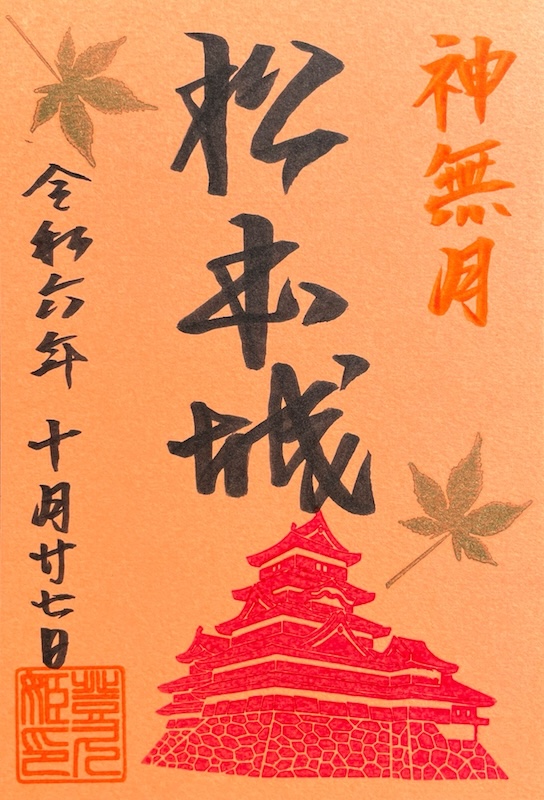 神無月
松本城
令和六年 十月廿七日